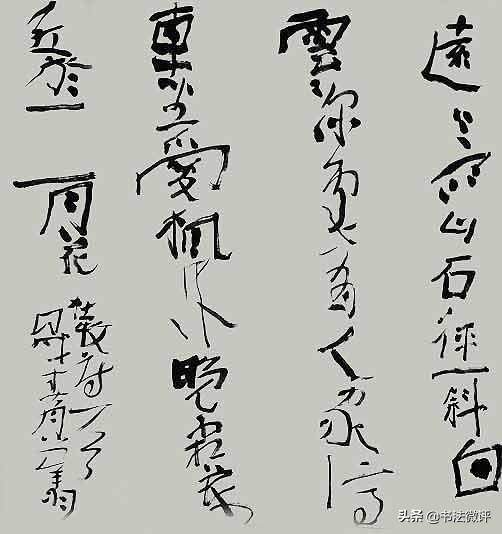 遠上寒山石徑斜白
雲深處有人家停
車坐愛楓林晚霜葉
紅於二月花
头条 @书法微评